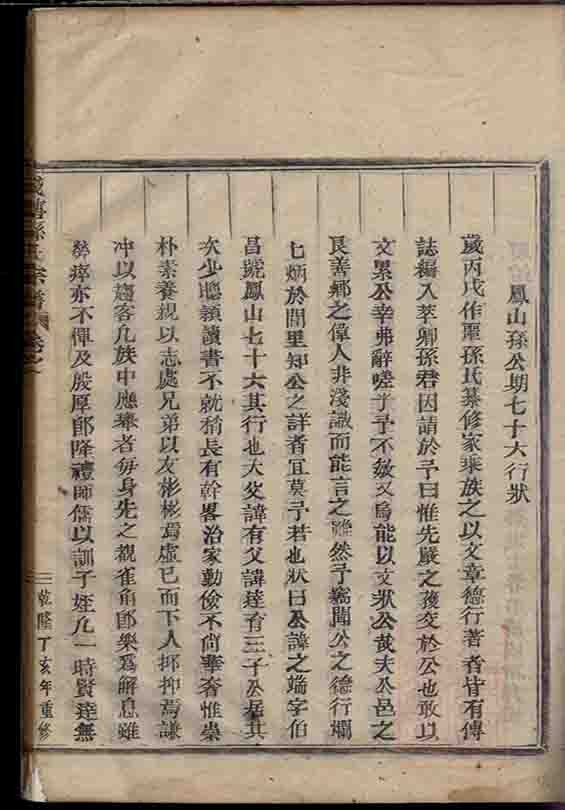 鳳山孫公期七十六行狀
歲丙戌作噩孫氏纂修家乘族之以文章德行著者皆有傳
誌編入萃卿孫君因請於予曰惟先嚴之獲交於公也敢以
文累公幸弗辭嗟予予不敏又烏能以文狀公哉夫公邑之
良善鄉之偉人非淺識而能言之雖然予竊聞公之德行爛
七炳於閭里知公之詳者宜莫予若也狀曰公諱之端字伯
昌號鳳山七十六其行也大父諱有父諱達育三子公居其
次少聰穎讀書不就稍長有幹畧治家勤儉不尚華奢惟崇
朴素養親以志處兄弟以友彬彬焉虛已而下人抑抑焉謙
冲以遜客凡族中應舉者每身先之觀雀角郎樂爲解息雖
瘁亦不憚及殷厚郎隆禮師儒以訓子姪凡一時賢達無
孫氏宗譜
乾隆丁亥年重修